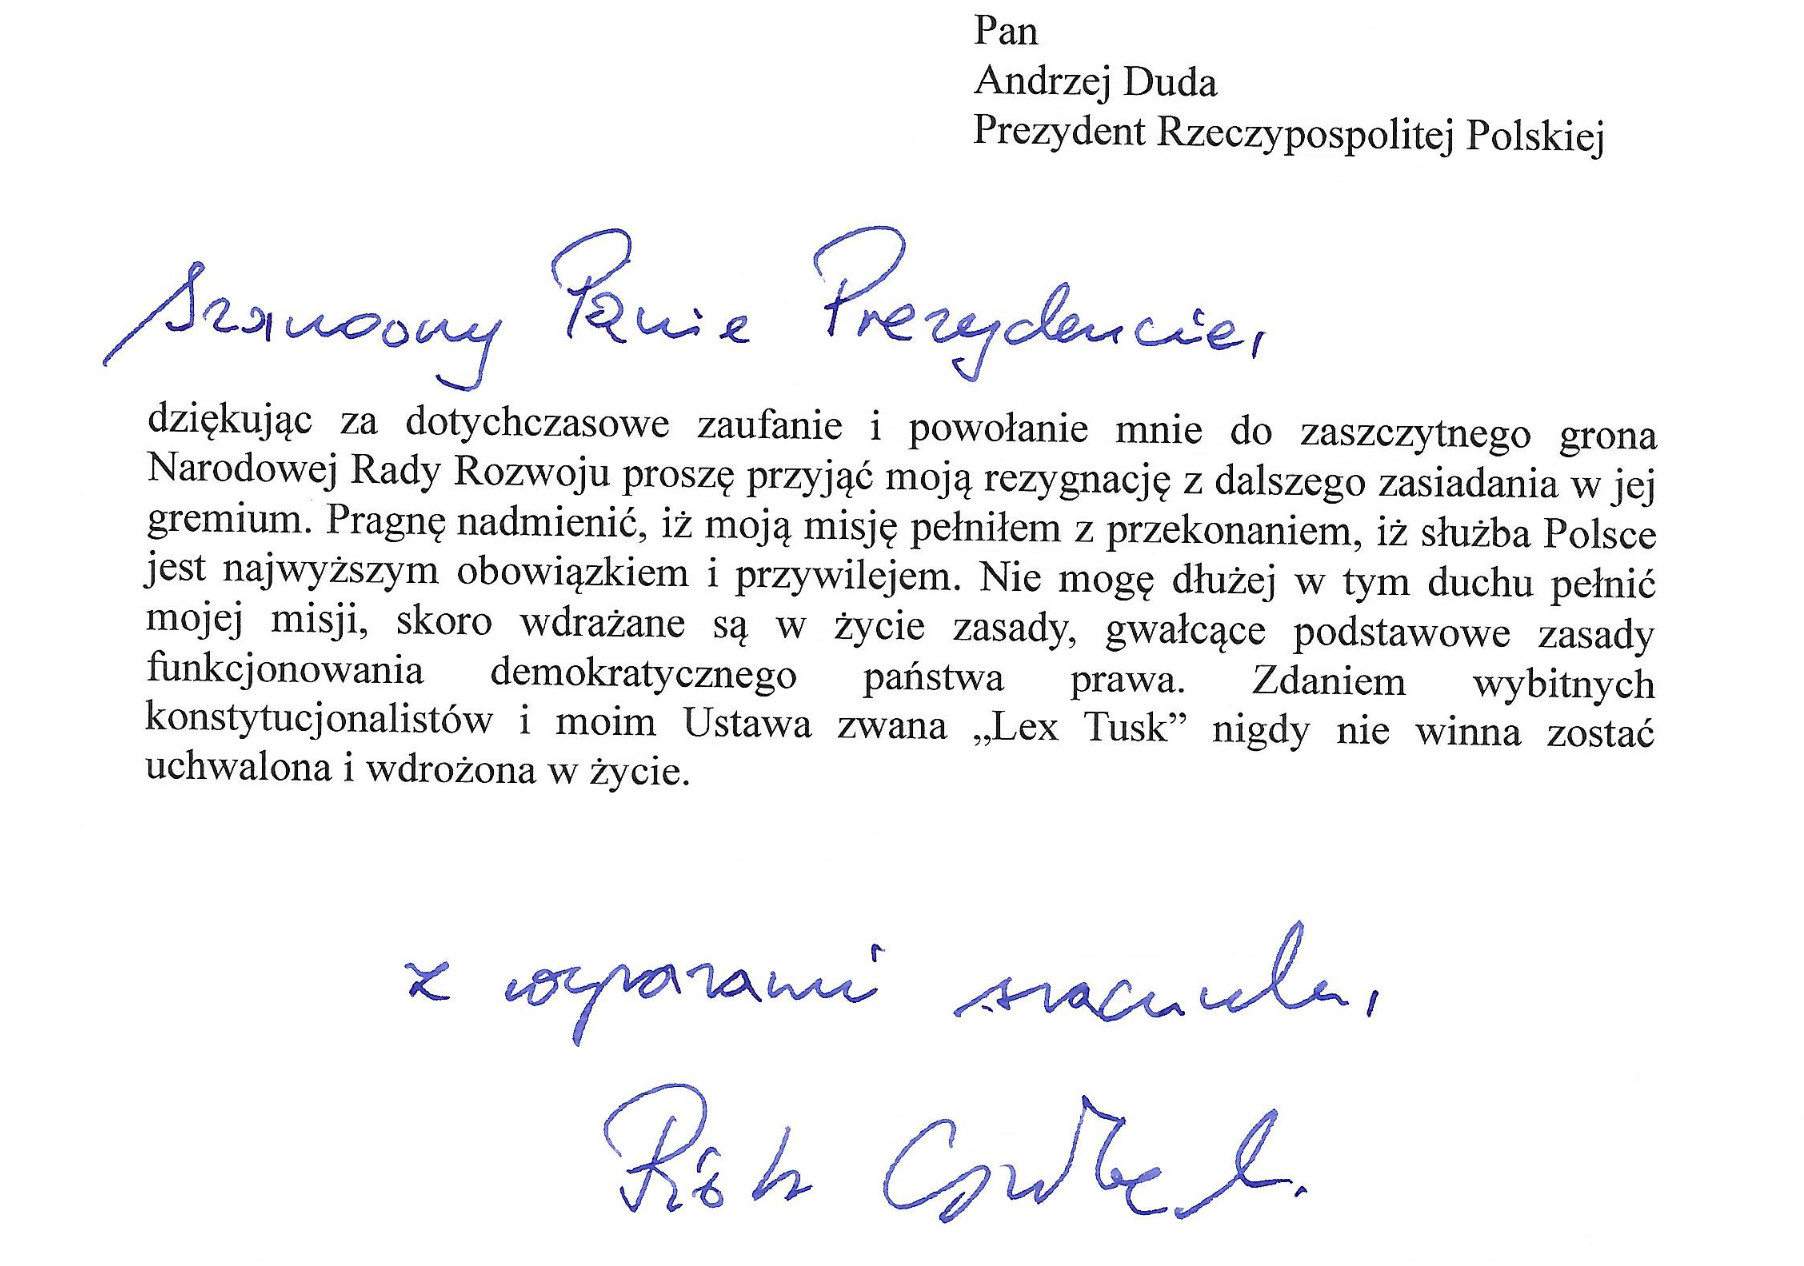 Pan
Andrzej Duda
Prezydent Rzeczypospolitej Polskiej
Szanowny Panie Prezydencie,
dziękując za dotychczasowe zaufanie i powołanie mnie do zaszczytnego grona
Narodowej Rady Rozwoju proszę przyjąć moją rezygnację z dalszego zasiadania w jej
gremium. Pragnę nadmienić, iż moją misję pełniłem z przekonaniem, iż służba Polsce
jest najwyższym obowiązkiem i przywilejem. Nie mogę dłużej w tym duchu pełnić
mojej misji, skoro wdrażane są w życie zasady, gwałcące podstawowe zasady
funkcjonowania demokratycznego państwa prawa. Zdaniem wybitnych
konstytucjonalistów i moim Ustawa zwana „Lex Tusk” nigdy nie winna zostać
uchwalona i wdrożona w życie.
z wyrazami szacunku,
Piotr